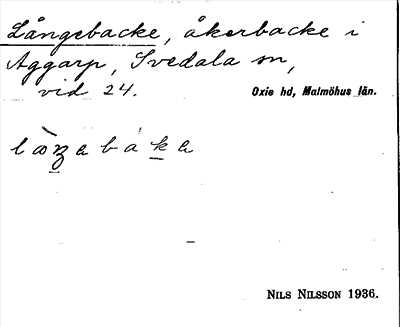 Långebacke, åkerbacke i
Aggarp, Svedala sn,
vid 24. Oxie hd, Malmöhus län.
NILS NILSSON 1936.